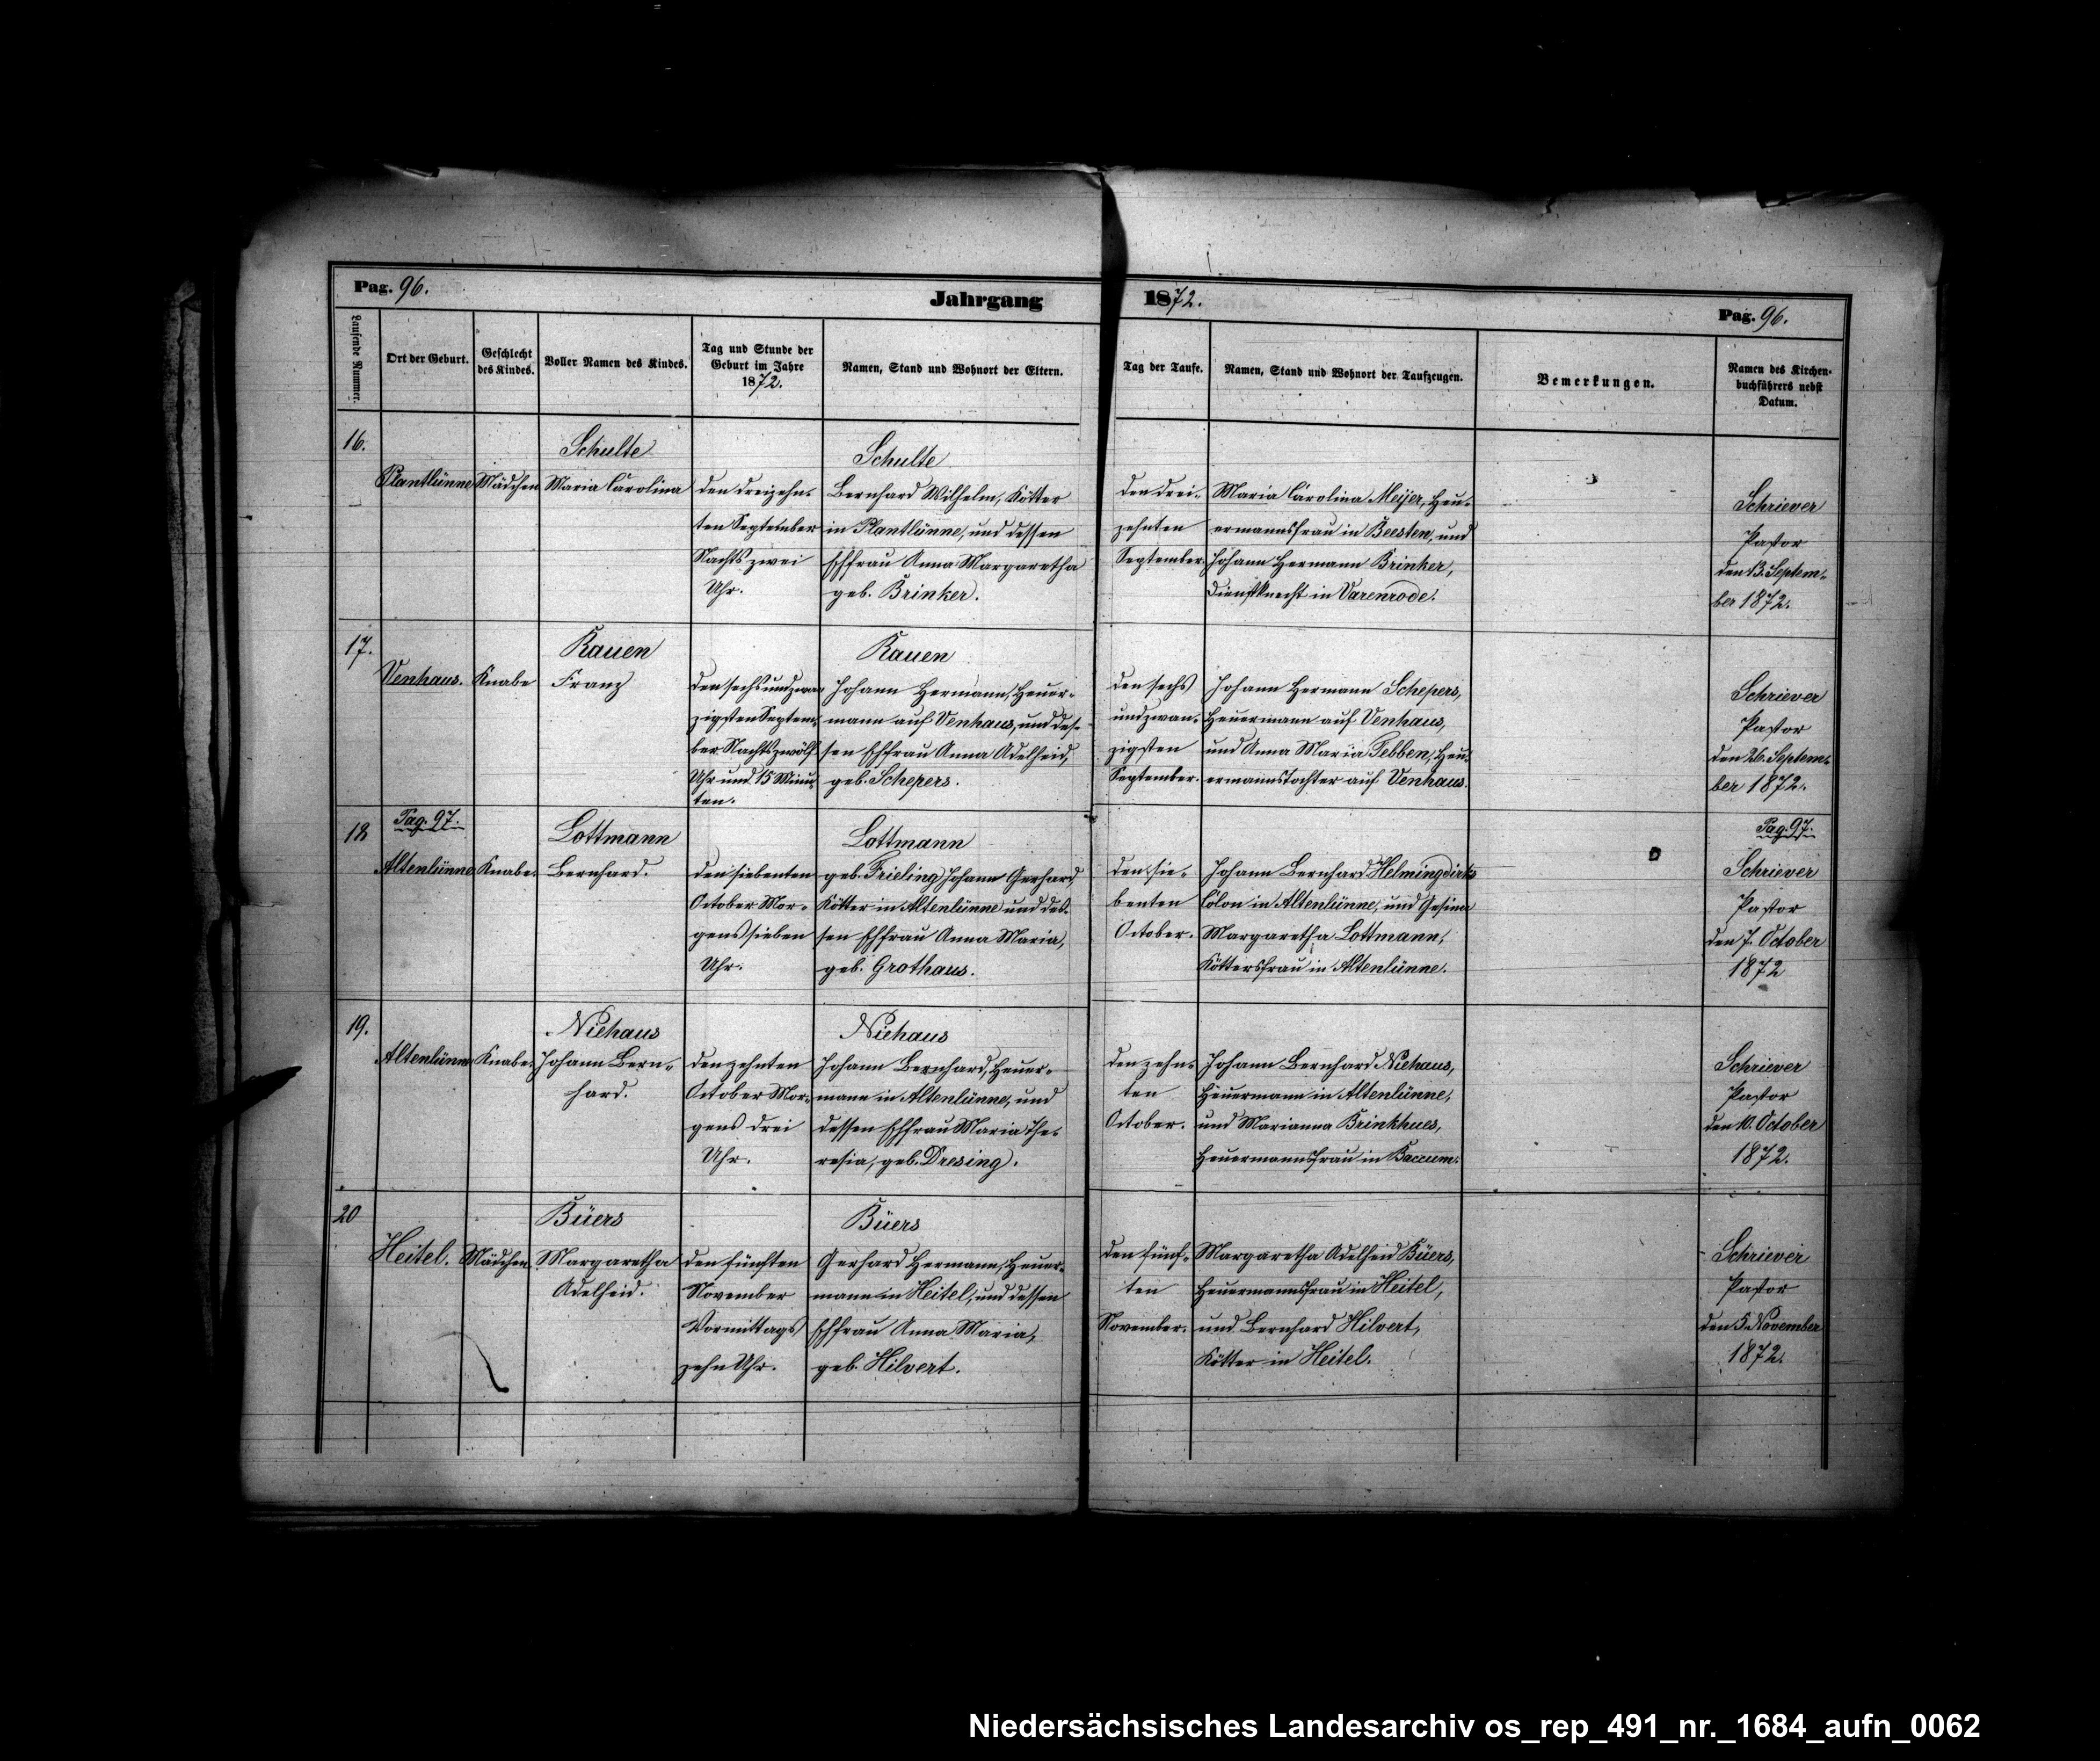 Pag. 96.
Jahrgang 1872.
Pag. 96.
Laufende Nummer.
Ort der Geburt.
Geschlecht
des Kindes.
Voller Namen des Kindes.
Tag und Stunde der
Geburt im Jahre
1872.
Namen, Stand und Wohnort der Eltern.
Tag der Taufe.
Namen, Stand und Wohnort der Taufzeugen.
Bemerkungen.
Namen des Kirchen-
buchführers nebst
Datum.
16.
Plantlünne
Mädchen
Schulte
Maria Carolina
den dreizehn-
ten September
Nachts zwei
Uhr.
Schulte
Bernhard Wilhelm, Kötter
in Plantlünne, und dessen
Ehfrau Anna Margaretha
geb. Brinker.
den drei-
zehnten
September.
Maria Carolina Meijer, Heu-
ermannsfrau in Beesten, und
Johann Hermann Brinker,
Dienstknecht in Varenrode.
Schriever
Pastor
den 13. Septem-
ber 1872.
17.
Venhaus.
Knabe
Rauen
Franz
den sechsundzwan
zigsten Septem-
ber Nachts zwölf
Uhr und 15 Minu-
ten.
Rauen
Johann Hermann, Heuer-
mann auf Venhaus, und des-
sen Ehfrau Anna Adelheid,
geb. Schepers.
den sechs
undzwan-
zigsten
September.
Johann Hermann Schepers,
Heuermann auf Venhaus,
und Anna Maria Tebben, Heu-
ermannstochter auf Venhaus.
Schriever
Pastor
den 26. Septem-
ber 1872.
18
Pag. 97.
Altenlünne
Knabe.
Lottmann
Bernhard.
den siebenten
October Mor-
gens sieben
Uhr.
Lottmann
geb. Frieling Johann Gerhard,
Kötter in Altenlünne und des-
sen Ehfrau Anna Maria,
geb. Grothaus.
den sie-
benten
October.
Johann Bernhard Helmingdirks
Colon in Altenlünne, und Gesina
Margaretha Lottmann,
Köttersfrau in Altenlünne.
Pag. 97.
Schriever
Pastor
den 7. October
1872
19.
Altenlünne
Knabe.
Niehaus
Johann Bern-
hard.
den zehnten
October Mor-
gens drei
Uhr.
Niehaus
Johann Bernhard, Heuer-
mann in Altenlünne, und
dessen Ehfrau Maria The-
resia, geb. Dresing.
den zehn-
ten
October.
Johann Bernhard Niehaus,
Heuermann in Altenlünne,
und Marianna Brinkhues,
Heuermannsfrau in Baccum.
Schriever
Pastor
den 10. October
1872.
20
Heitel.
Mädchen.
Büers
Margaretha
Adelheid.
den fünften
November
Vormittags
zehn Uhr.
Büers
Gerhard Hermann, Heuer-
mann in Heitel, und dessen
Ehfrau Anna Maria,
geb. Hilvert.
den fünf-
ten
November.
Margaretha Adelheid Büers,
Heuermannsfrau in Heitel,
und Bernhard Hilvert,
Kötter in Heitel.
Schriever
Pastor
den 5. November
1872.
Niedersächsisches Landesarchiv os_rep_491_nr._1684_aufn_0062